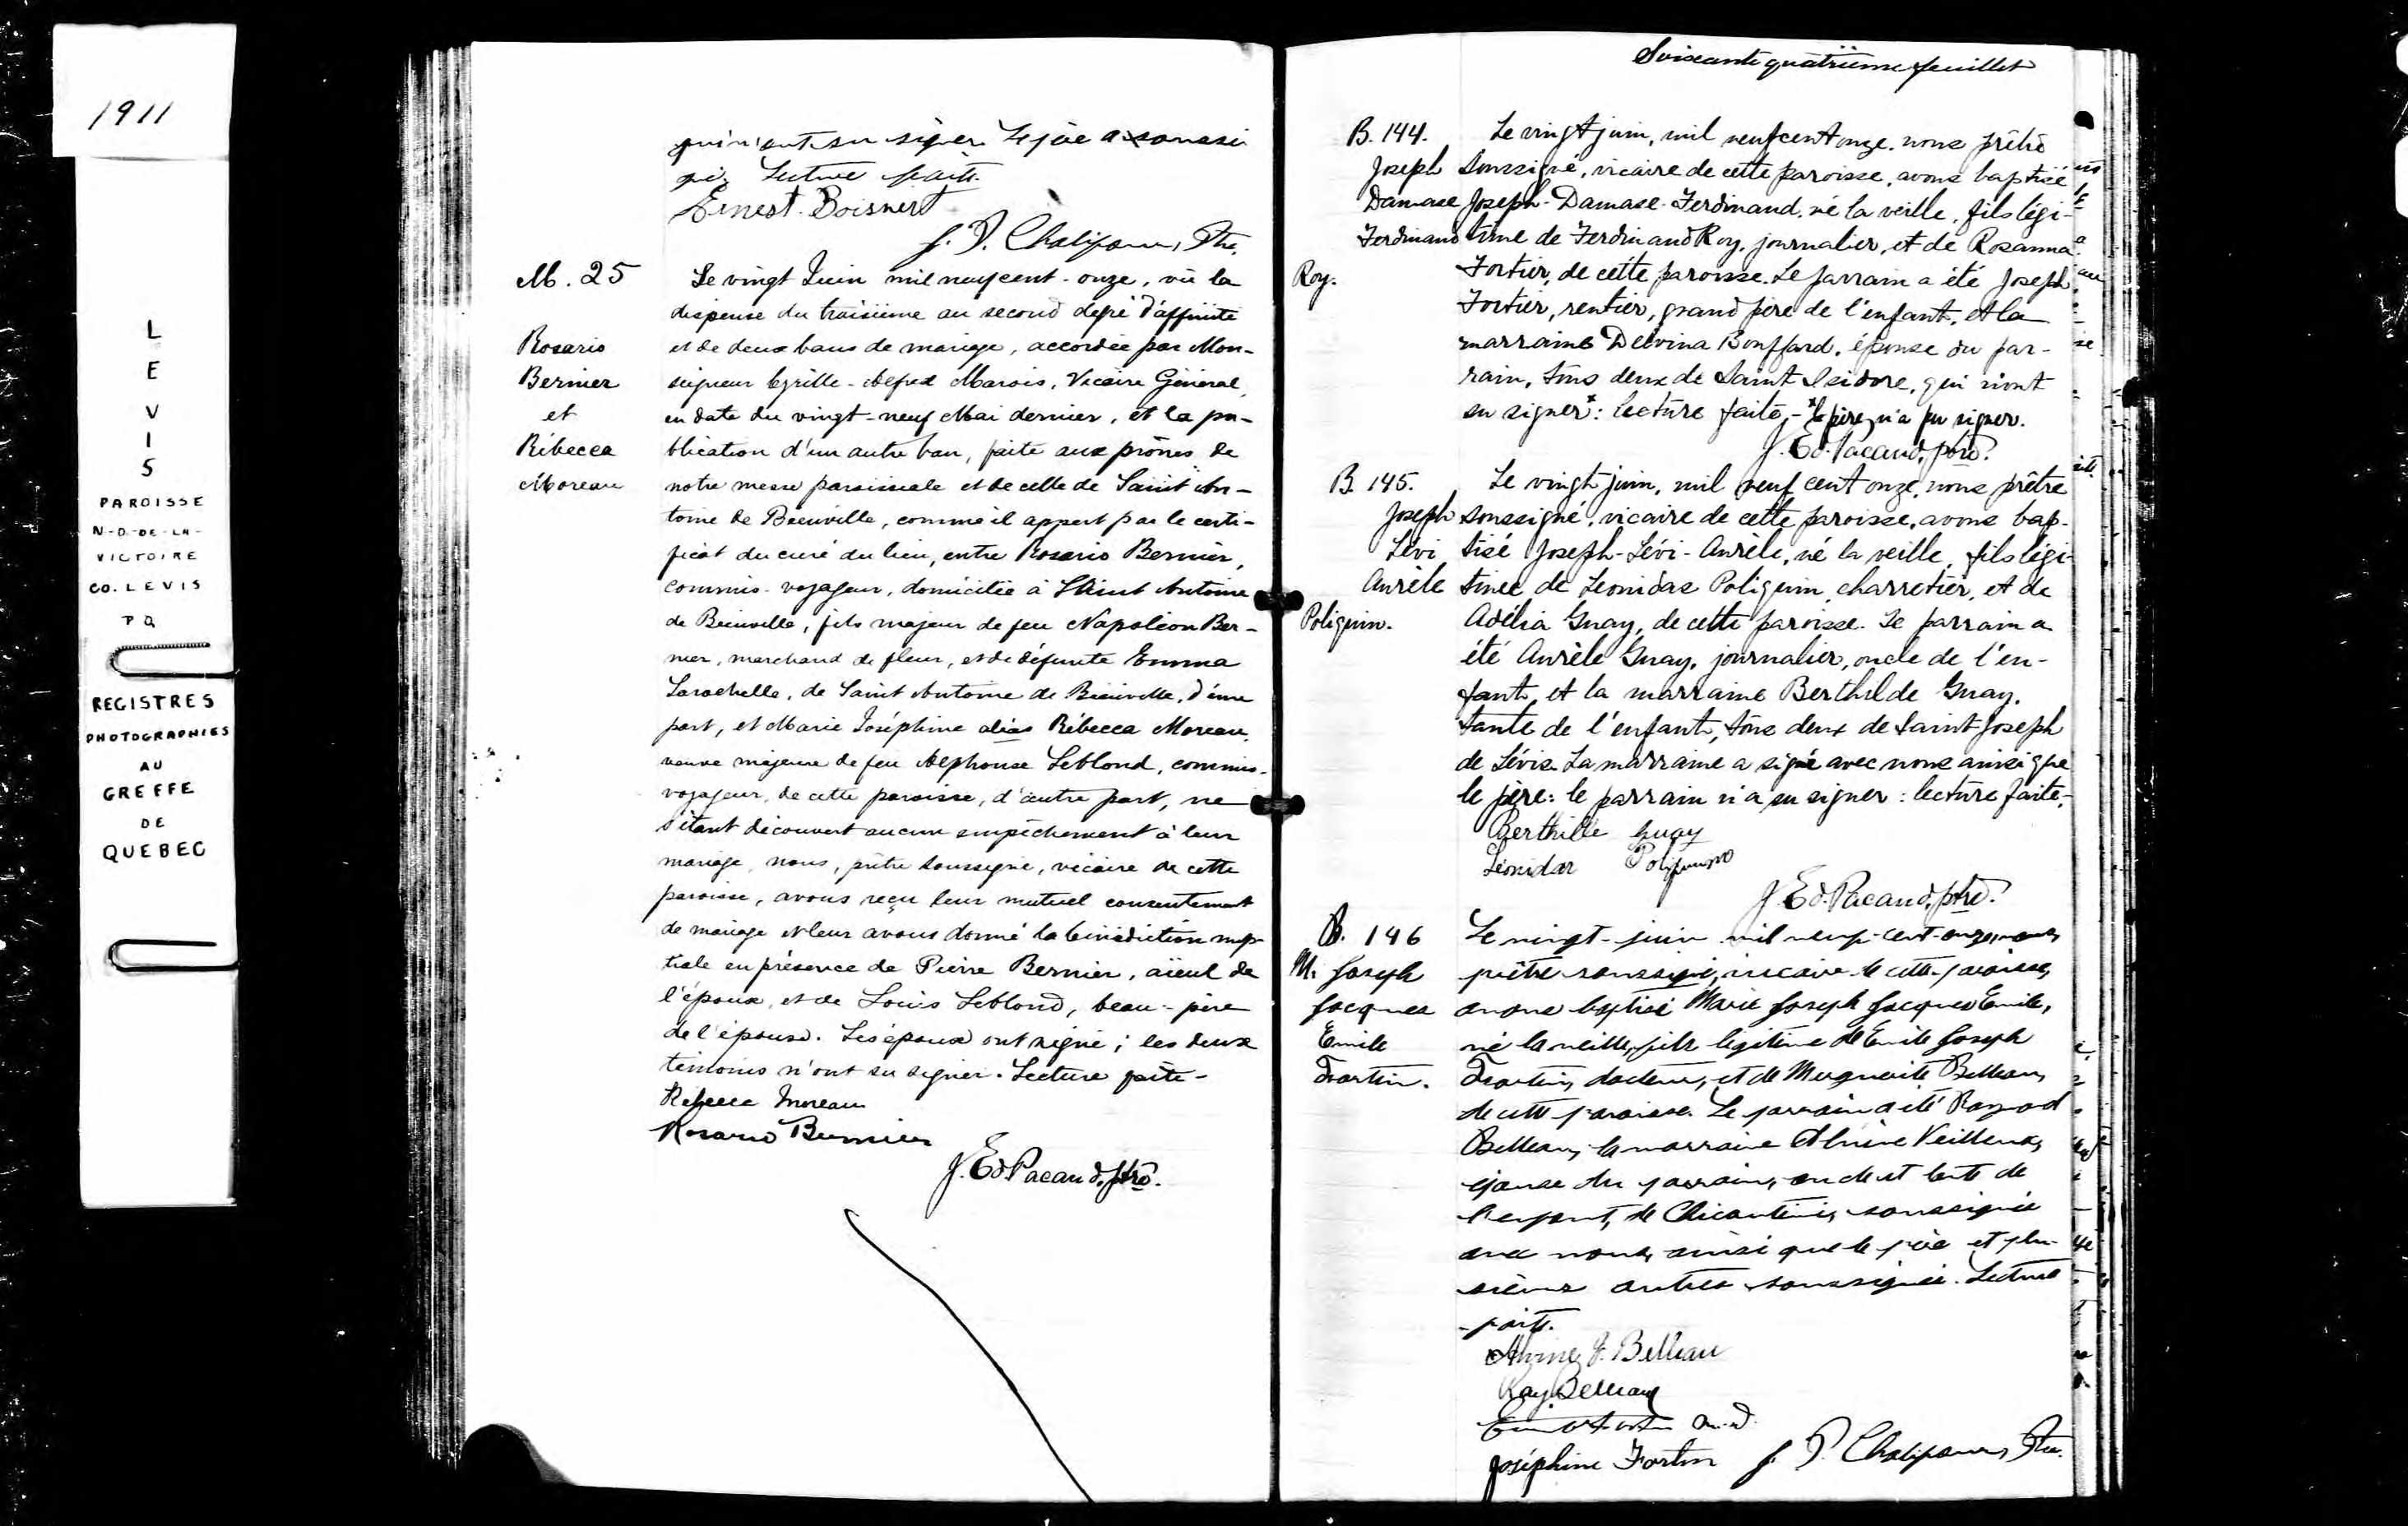 1911
L
E
V
I
S
PAROISSE
N-D-DE-LA-
VICTOIRE
CO. LEVIS
P Q
REGISTRES
PHOTOGRAPHIES
AU
GREFFE
DE
QUEBEC
qui n'ont su signer. Le père a soussi
gné. Lecture faite.
Ernest Boisvert
Ptre.
M. 25
Rosario
Bernier
et
Rébecca
Moreau
Le vingt Juin mil neuf cent-onze, vu la
dispense du troisième au second degré d'affinité
et de deux bans de mariage, accordée par Mon-
seigneur Cyrille-Alfred Marois, Vicaire Général,
en date du vingt-neuf Mai dernier, et la pu-
blication d'un autre ban, faite aux prônes de
notre messe paroissiale et de celle de Saint An-
toine de Bienville, comme il appert par le certi-
ficat du curé du lieu, entre Rosario Bernier,
commis-voyageur, domicilié à Saint Antoine
de Bienville, fils majeur de feu Napoléon Ber-
nier, marchand de fleur, et de défunte Emma
Larochelle, de Saint Antoine de Bienville, d'une
part, et Marie Joséphine alias Rébecca Moreau,
veuve majeure de feu Alphonse Leblond, commis-
voyageur, de cette paroisse, d'autre part, ne
s'étant découvert aucun empêchement à leur
mariage, nous, prêtre soussigné, vicaire de cette
paroisse, avons reçu leur mutuel consentement
de mariage et leur avons donné la bénédiction nup-
tiale en présence de Pierre Bernier, aïeul de
l'époux, et de Louis Leblond, beau-père
de l'épouse. Les époux ont signé; les deux
témoins n'ont su signer. Lecture faite-
Rebecca Moreau
Rosario Bernier
J. Ed Pacaud, ptre.
Soixante quatrième feuillet
B. 144.
Joseph
Damase
Ferdinand
Roy.
Le vingt juin, mil neuf cent onze, nous prêtre
soussigné, vicaire de cette paroisse, avons baptisé
Joseph-Damase-Ferdinand, né la veille, fils légi-
time de Ferdinand Roy, journalier, et de Rosanna
Fortier, de cette paroisse. Le parrain a été Joseph
Fortier, rentier, grand père de l'enfant, et la
marraine Delvina Bouffard, épouse du par-
rain, tous deux de Saint Isidore, qui n'ont
su signer*: lecture faite,- *le père n'a pu signer.
J. Ed. Pacaud, ptre.
B. 145.
Joseph
Lévi
Aurèle
Poliquin.
Le vingt juin, mil neuf cent onze, nous prêtre
soussigné, vicaire de cette paroisse, avons bap-
tisé Joseph-Lévi-Aurèle, né la veille, fils légi-
time de Leonidas Poliquin, charretier, et de
Adélia Guay, de cette paroisse. Le parrain a
été Aurèle Guay, journalier, oncle de l'en-
fant, et la marraine Berthilde Guay,
tante de l'enfant, tous deux de Saint Joseph
de Lévis. La marraine a signé avec nous ainsi que
le père: le parrain n'a su signer: lecture faite,-
Berthilde Guay
Léonidas Poliquin
J. Ed. Pacaud, ptre.
B. 146
M. Joseph
Jacques
Emile
Fortin.
Le vingt-juin mil neuf-cent-onze, nous
prêtre soussigné, vicaire de cette paroisse,
avons baptisé Marie Joseph Jacques Emile,
né la veille, fils légitime de Emile Joseph
Fortin, docteur, et de Marguerite Belleau,
de cette paroisse. Le parrain a été
Belleau, la marraine Veilleux,
épouse du parrain, oncle et tante de
l'enfant, de Chicoutimi, soussignés
avec nous, ainsi que le père et plu-
sieurs autres soussignés. Lecture
faite.
J. Belleau
Ray. Belleau
Joséphine Fortin
Ptre.